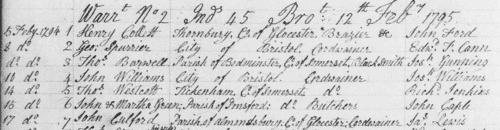 Warrt. No 2 Ind 45 Brot. 12th Feby 1795
5 Feby. 1794 1 Henry Collett Thornbury, Co. of Glocester Brazier & John Ford
8 do. 2 Geo. Spurrier City of Bristol Cordwainer Edwd. T. Cann
do. do. 3 Thos. Barwell Parish of Bedminster, C. of Somerset, Black Smith Jos. Gunning
10 do. 4 John Williams City of Bristol Cordwainer Jos. Williams
14 do. 5 Thos. Westcott Tickenham, C. of Somerset, do. Richd. Jenkins
15 do. 6 John & Martha Green, Parish of do. Butchers John Caple
17 do. 7 John Parish of Almondsbury, C. of Glocester, Cordwainer Jas. Lewis